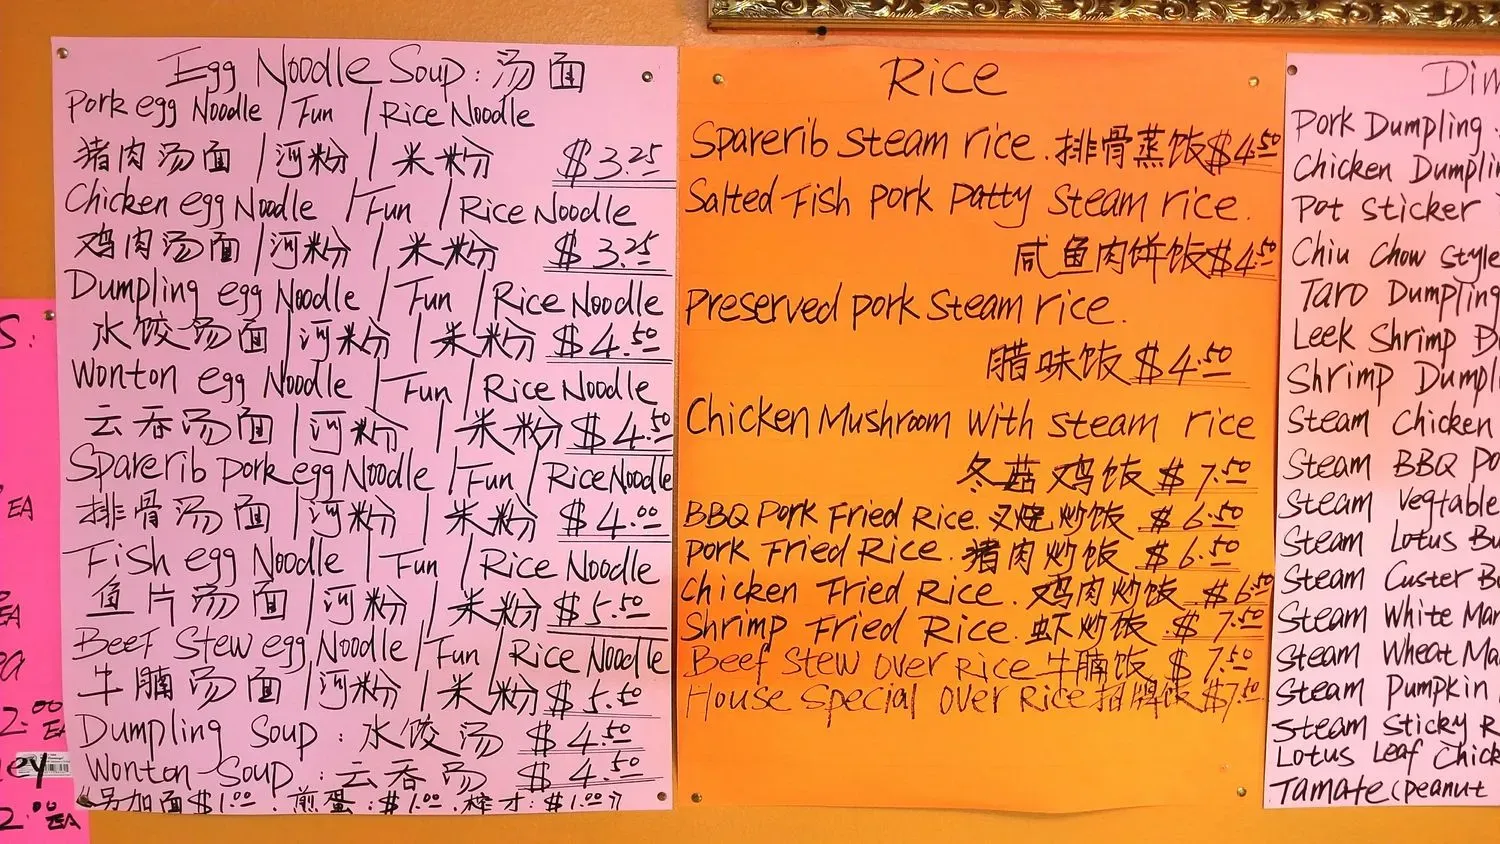 Egg Noodle Soup: 汤面
Pork egg Noodle / Fun / Rice Noodle
猪肉汤面 / 河粉 / 米粉 $3.25
Chicken egg Noodle / Fun / Rice Noodle
鸡肉汤面 / 河粉 / 米粉 $3.25
Dumpling egg Noodle / Fun / Rice Noodle
水饺汤面 / 河粉 / 米粉 $4.50
Wonton egg Noodle / Fun / Rice Noodle
云吞汤面 / 河粉 / 米粉 $4.50
Sparerib pork egg Noodle / Fun / Rice Noodle
排骨汤面 / 河粉 / 米粉 $4.00
Fish egg Noodle / Fun / Rice Noodle
鱼片汤面 / 河粉 / 米粉 $5.50
Beef Stew egg Noodle / Fun / Rice Noodle
牛腩汤面 / 河粉 / 米粉 $5.50
Dumpling Soup: 水饺汤 $4.50
Wonton Soup: 云吞汤 $4.50
另加面 $1.00. 煎蛋: $1.00.
Rice
Sparerib Steam rice. 排骨蒸饭 $4.50
Salted Fish pork patty steam rice.
咸鱼肉饼饭 $4.50
Preserved pork Steam rice.
腊味饭 $4.50
Chicken Mushroom With steam rice
冬菇鸡饭 $7.50
BBQ Pork Fried Rice. 叉烧炒饭 $6.50
Pork Fried Rice. 猪肉炒饭 $6.50
Chicken Fried Rice. 鸡肉炒饭 $6.50
Shrimp Fried Rice. 虾炒饭 $7.50
Beef Stew over Rice 牛腩饭 $7.50
House Special over Rice 招牌饭 $7.50
Dim
Pork Dumpling
Chicken Dumplin
Pot Sticker
Chiu Chow Style
Taro Dumpling
Leek Shrimp D
Shrimp Dumpl
Steam Chicken
Steam BBQ Po
Steam Vegtable
Steam Lotus Bu
Steam Custer B
Steam White Man
Steam Wheat Ma
Steam Pumpkin
Steam Sticky R
Lotus Leaf Chick
Tamate (peanut
S:
EA
EA
2.00 EA
ey
2.00 EA